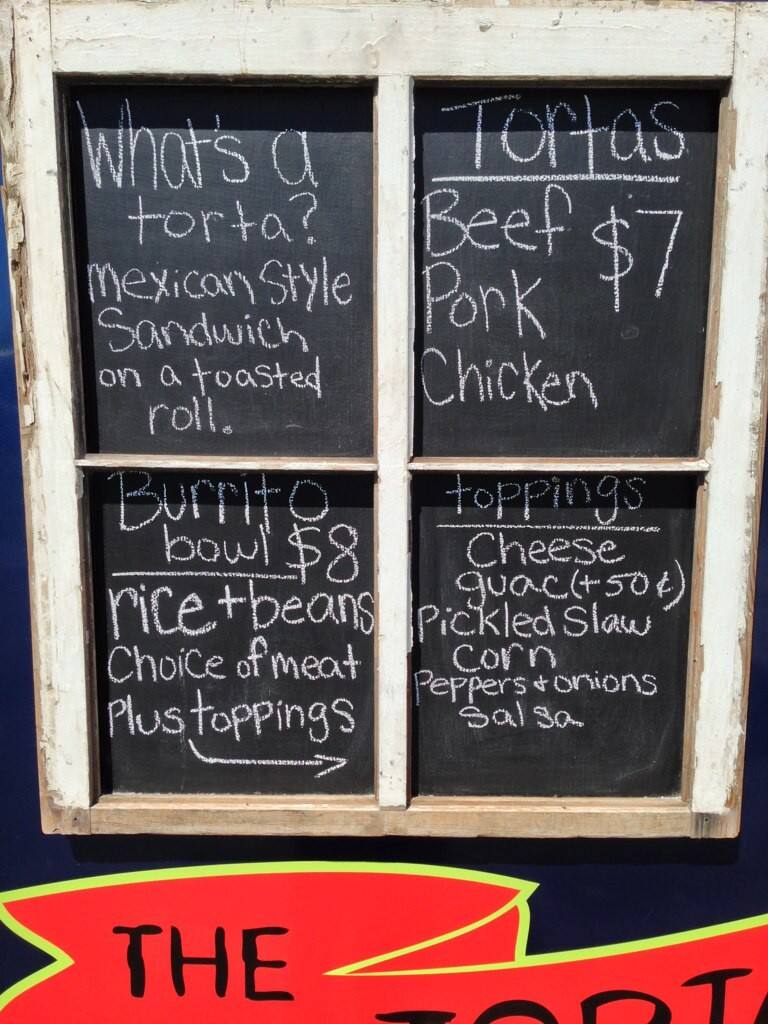 What's a
torta?
mexican Style
Sandwich
on a toasted
roll.
Tortas
Beef $7
Pork
Chicken
Burrito
bowl $8
rice + beans
Choice of meat
Plus toppings
toppings
Cheese
guac (+50¢)
Pickled Slaw
Corn
Peppers + onions
Salsa
THE